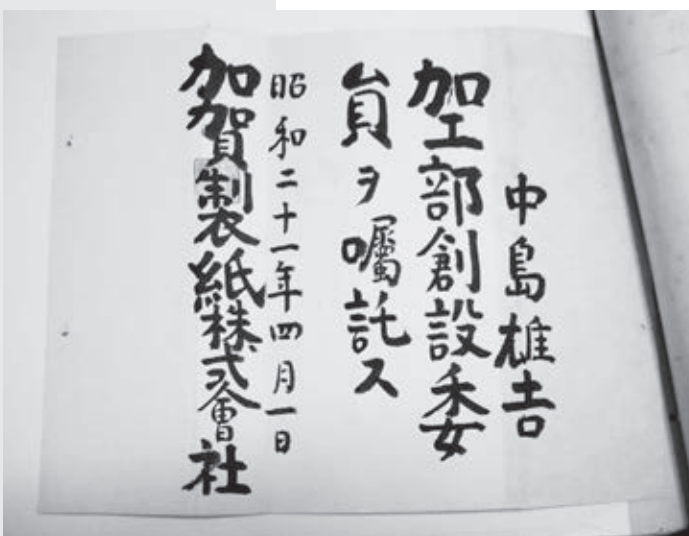 中島雄吉
加工部創設委
員ヲ囑託ス
昭和二十一年四月一日
加賀製紙株式會社